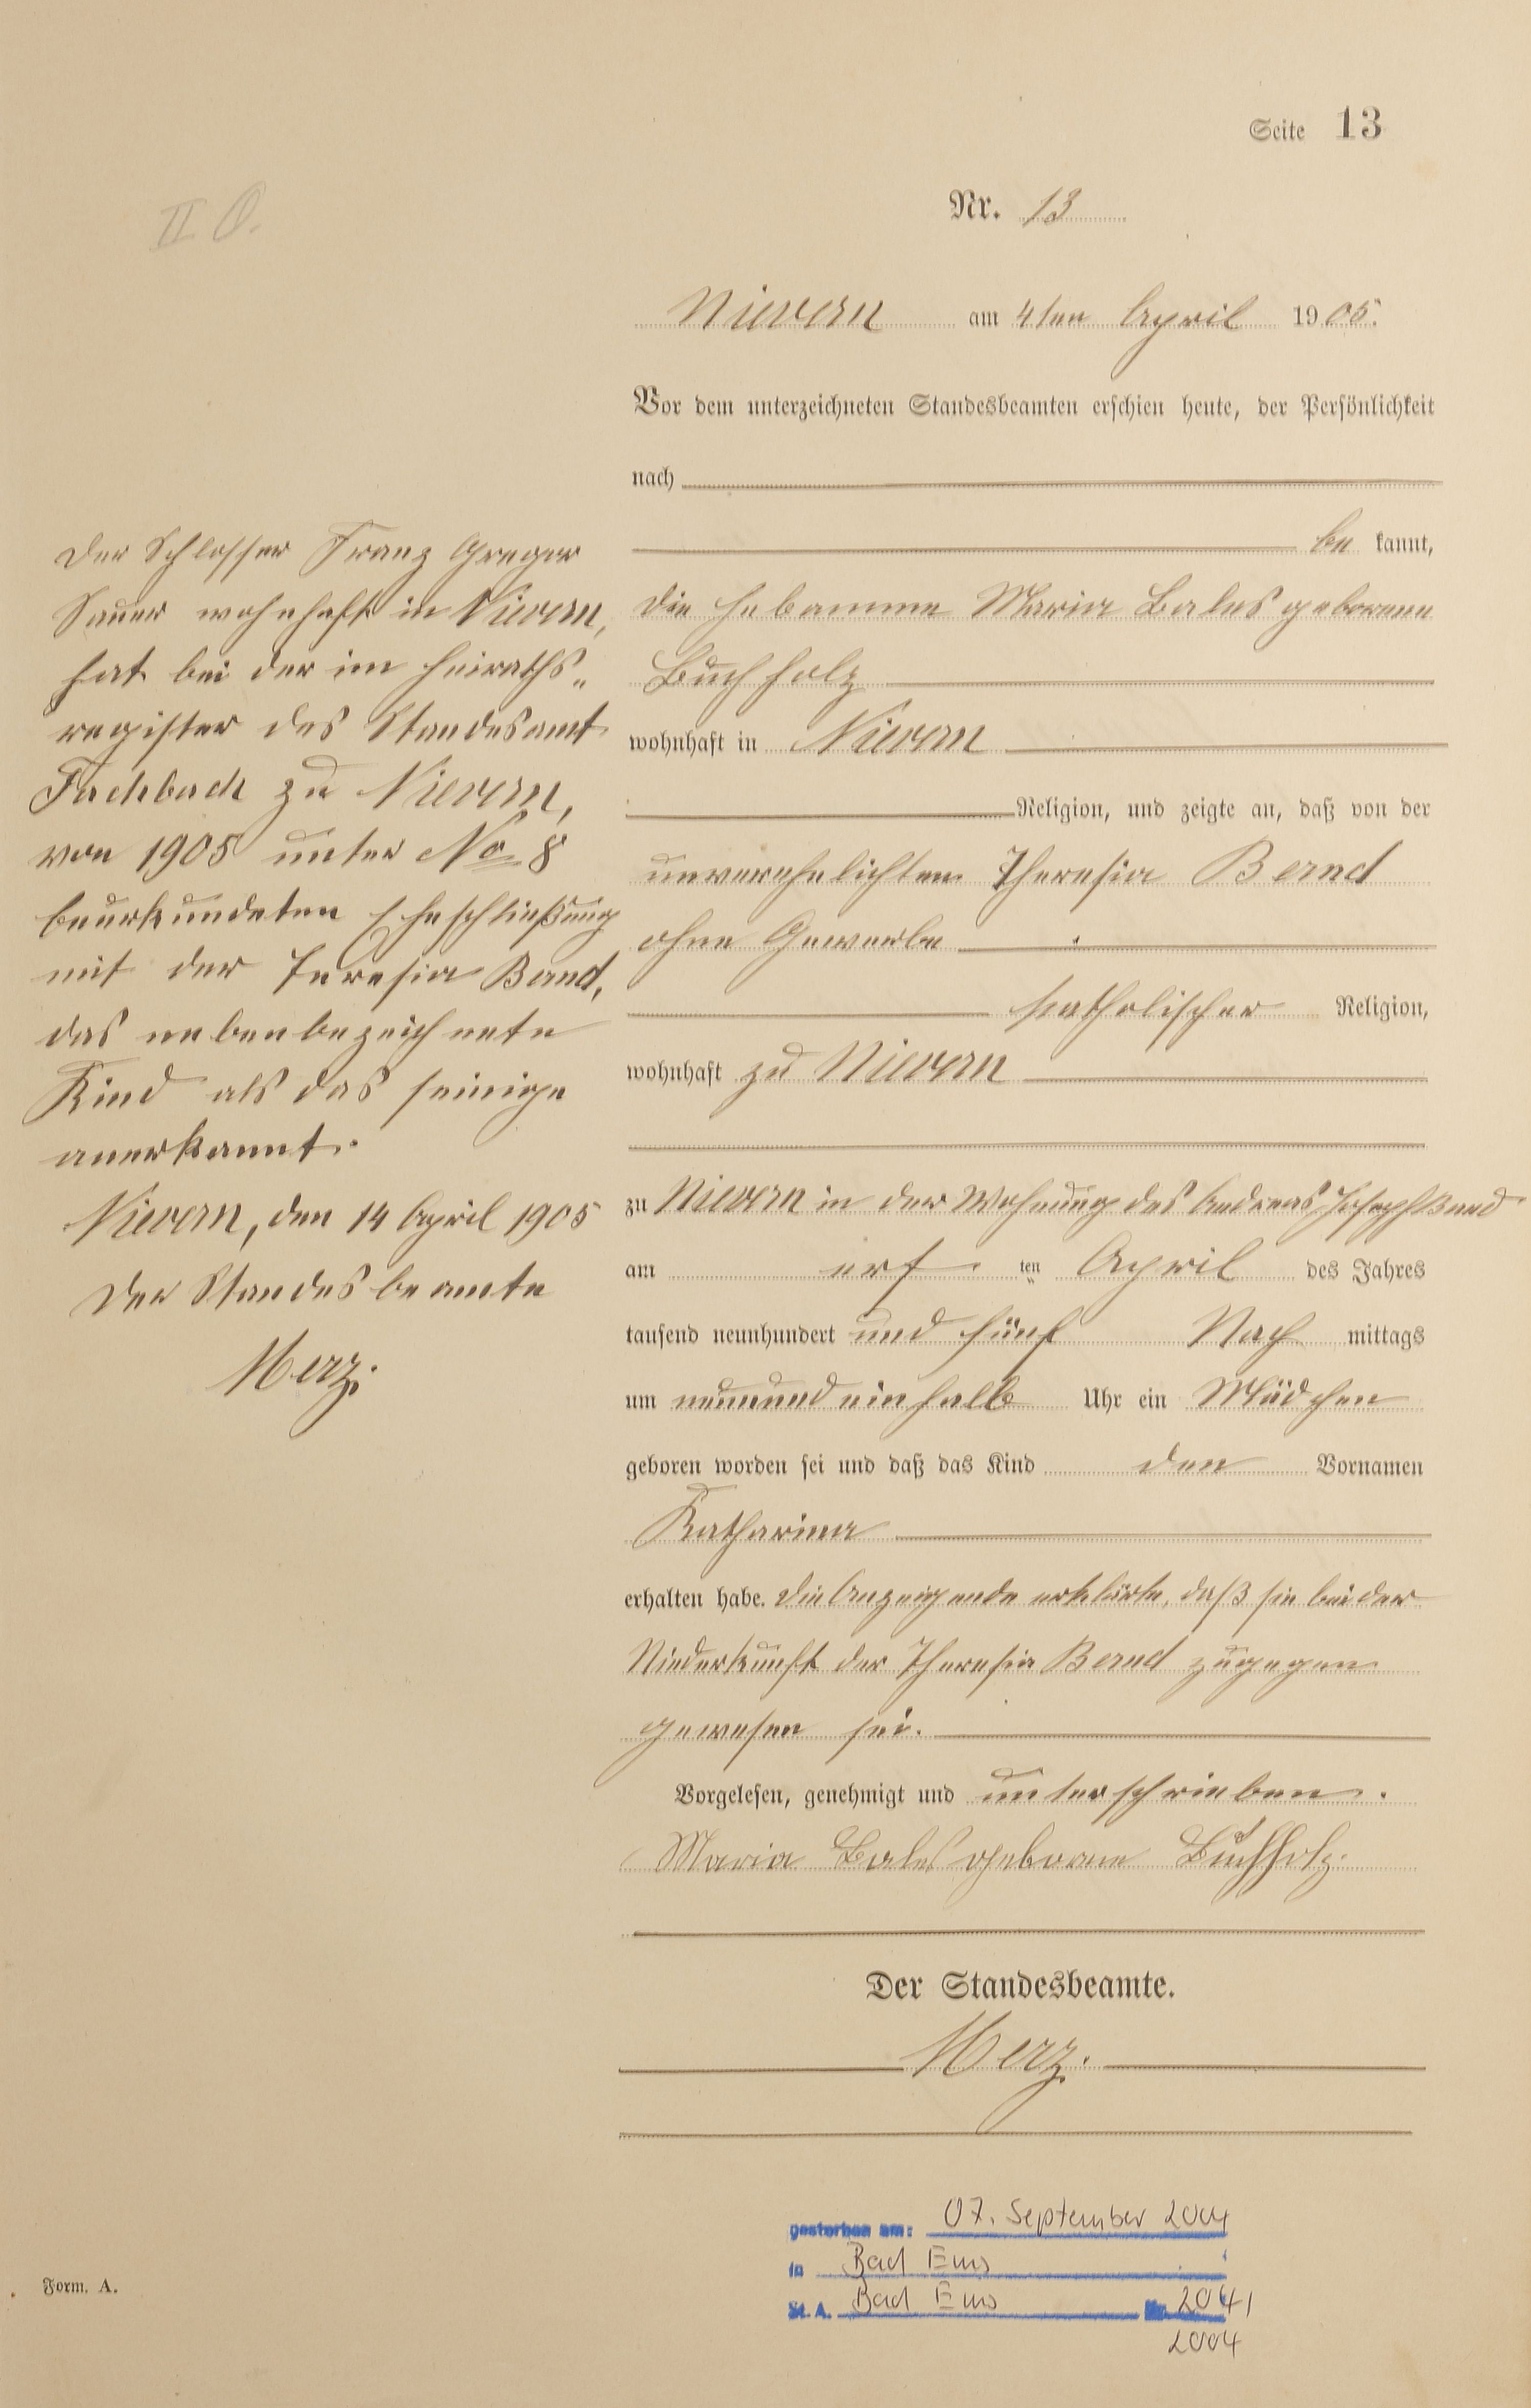 Seite 13
II O.
Nr. 13
Nievern am 4ten April 1905.
Vor dem unterzeichneten Standesbeamten erschien heute, der Persönlichkeit
nach
be kannt,
die Hebamme Maria Bales geborene
Buchholz
wohnhaft in Nievern
Religion, und zeigte an, daß von der
unverehelichten Theresia Bernd
ohne Gewerbe
katholischer Religion,
wohnhaft zu Nievern
zu Nievern in der Wohnung des Andreas Joseph Bernd
am ersten April des Jahres
tausend neunhundert und fünf Nach mittags
um neunundeinhalb Uhr ein Mädchen
geboren worden sei und daß das Kind den Vornamen
Katharina
erhalten habe. Die Anzeigende erklärte, daß sie bei der
Niederkunft der Theresia Bernd zugegen
gewesen sei.
Vorgelesen, genehmigt und unterschrieben.
Maria Bales geborene Buchholz.
Der Standesbeamte.
Merz.
Der Schlosser Franz Gregor
Sauer wohnhaft in Nievern,
hat bei der im Heiraths„
register des Standesamt
Fachbach zu Nievern,
von 1905 unter No 8
beurkundeten Eheschließung
mit der Teresia Bernd,
das nebenbezeichnete
Kind als das seinige
anerkannt.
Nievern, den 14 April 1905
Der Standesbeamte
Merz.
gestorben am: 07. September 2004
in Bad Ems
St. A. Bad Ems Nr. 204/
2004
Form. A.